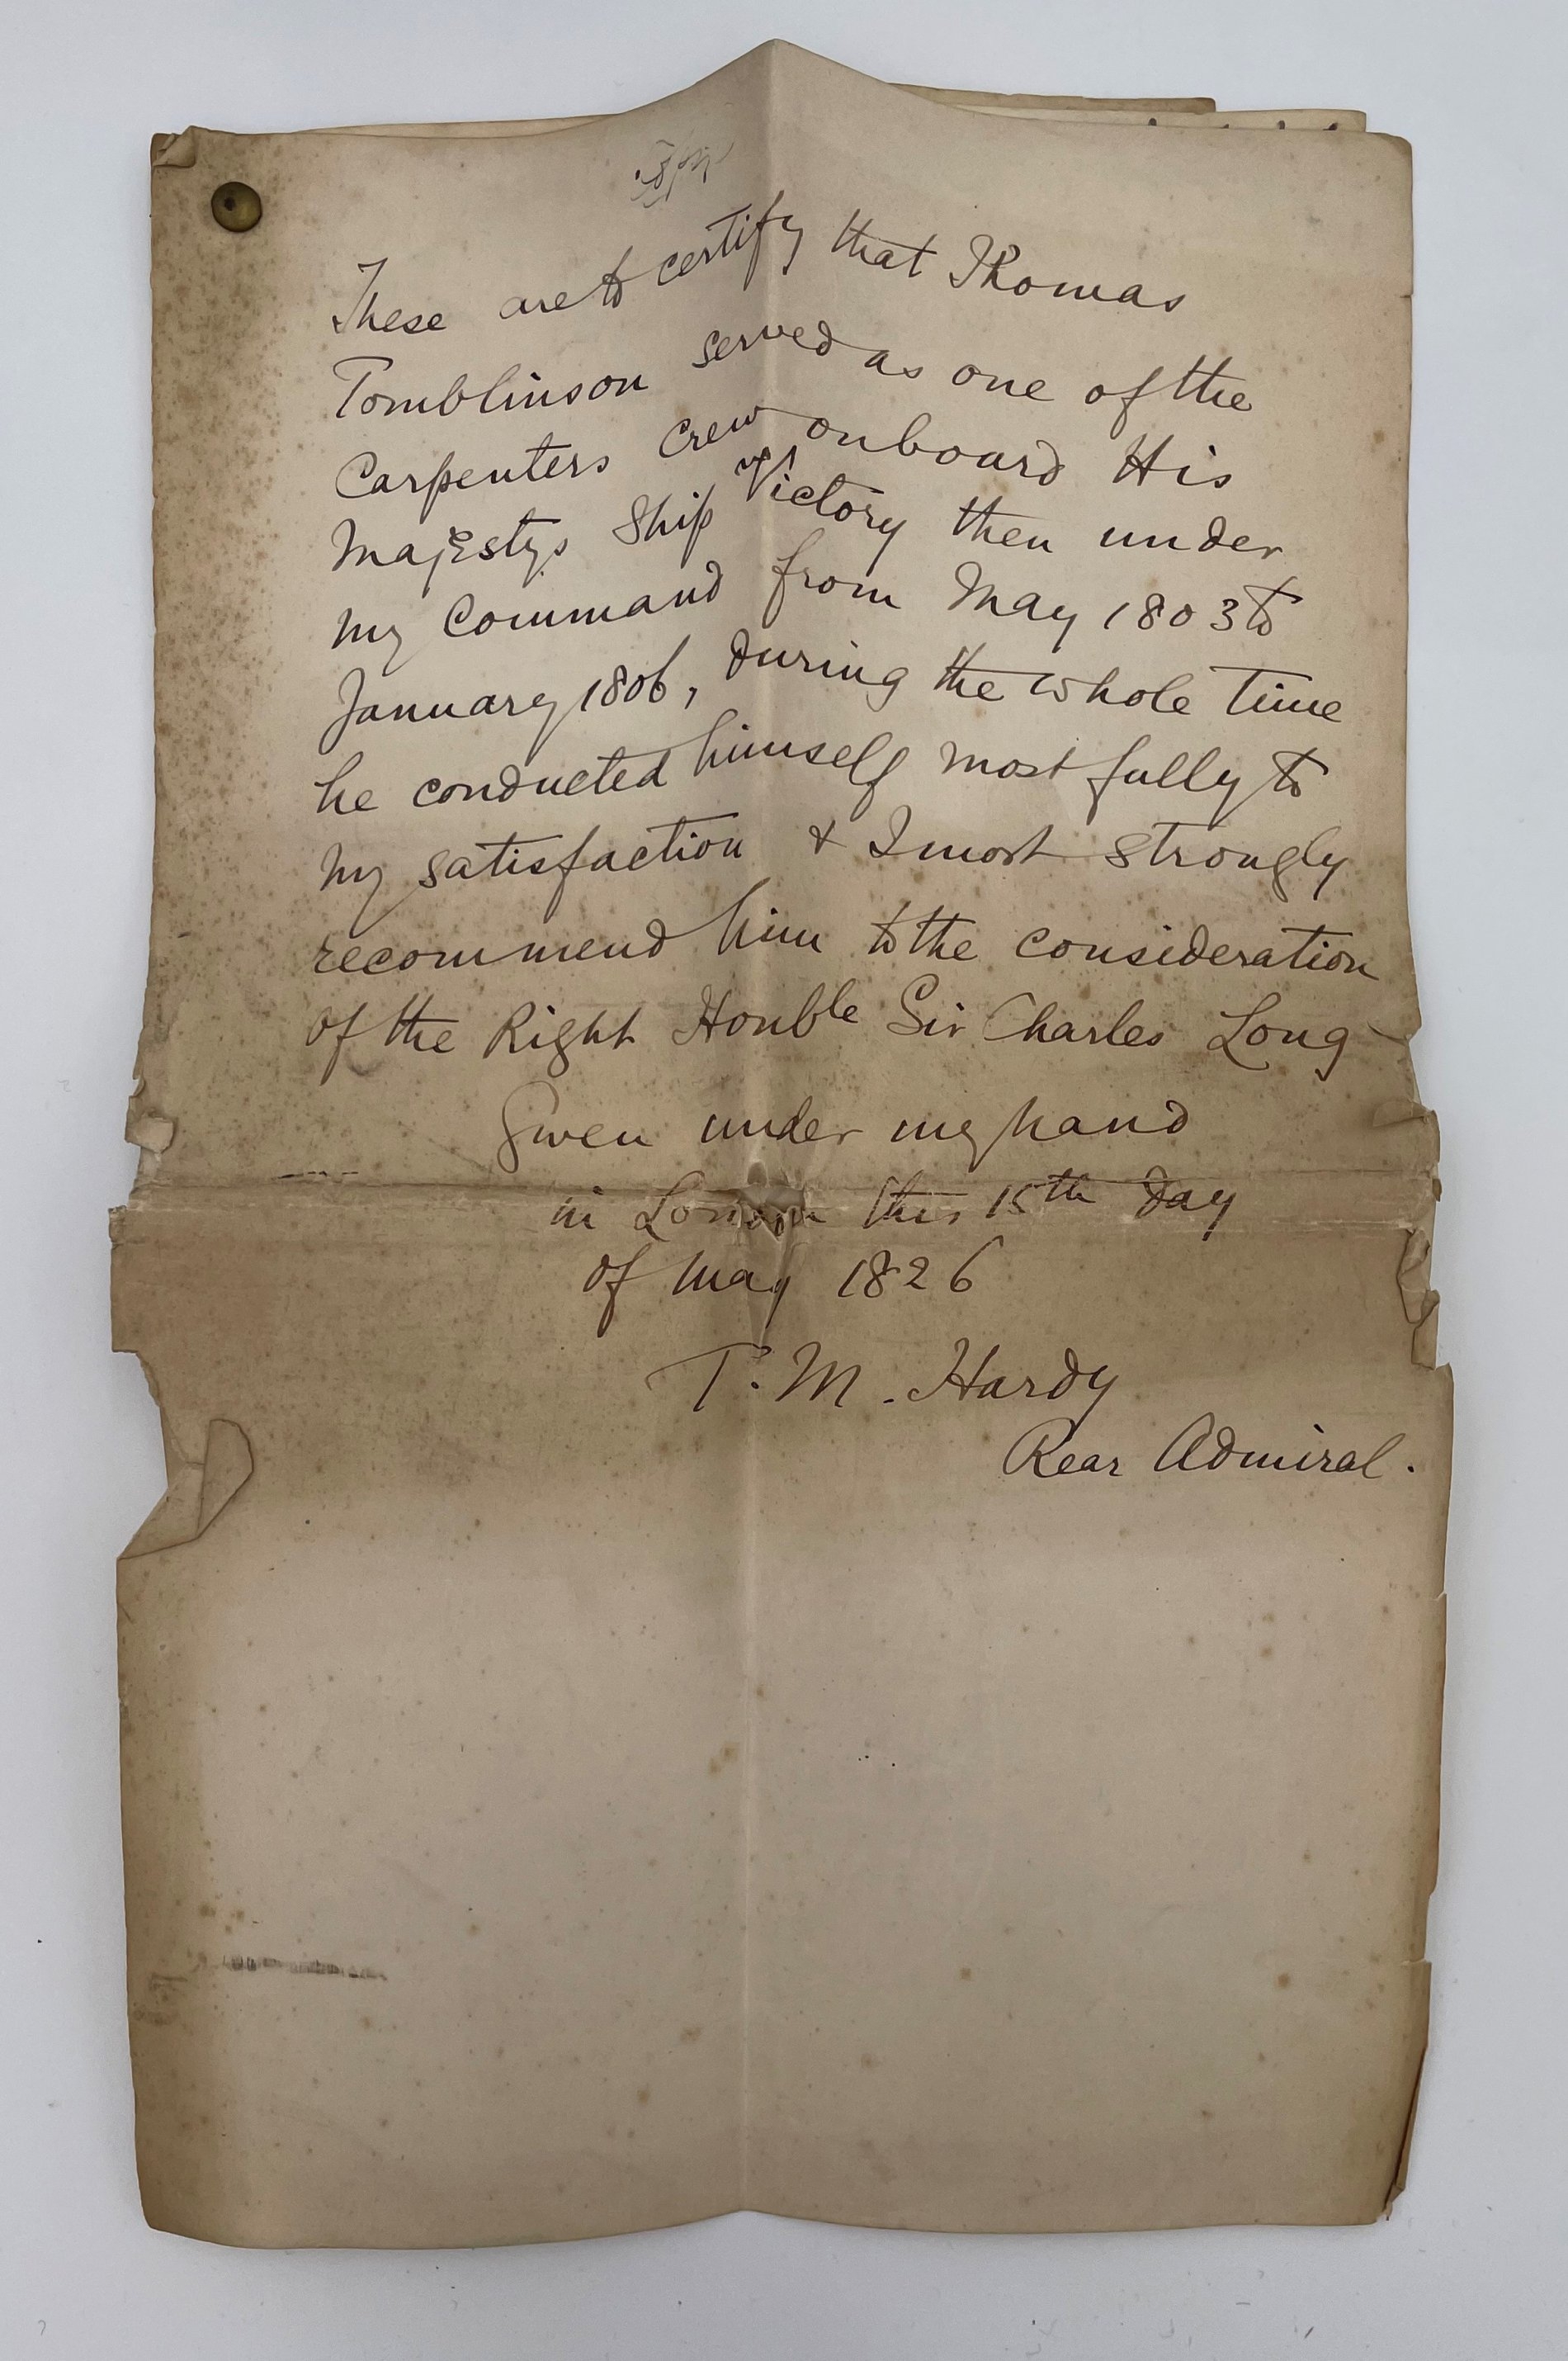 These are to certify that Thomas
Tomblinson served as one of the
Carpenters Crew onboard His
Majestys Ship Victory then under
my Command from May 1803 to
January 1806, during the whole time
he conducted himself most fully to
my satisfaction & I most strongly
recommend him to the consideration
of the Right Honble Sir Charles Long
Given under my hand
in London this 15th day
of May 1826
T. M. Hardy
Rear Admiral.